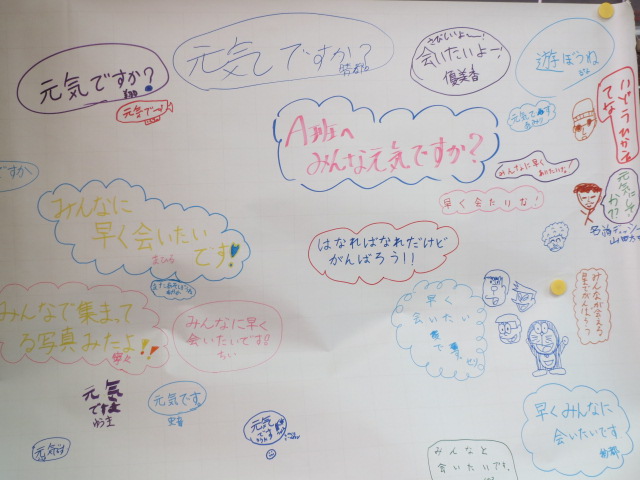 元気ですか？
元気ですか？
さびしいよー！
会いたいよー！
優美香
遊ぼうね
元気で
A班へ
みんな元気ですか？
元気です
みんなに早く
あいたいな！
早く会たいな！
ですか
みんなに
早く会いたい
です!
まひる
はなればなれだけど
がんばろう！！
山田
みんなで集まって
る写真みたよ!!
みんなに早く
会いたいです!!
ちい
早く
会いたい
で
みんなが会える
までがんばろう
元気
ですよ
元気です
元気
です
元気です
早くみんなに
会いたいです
みんなと
会いたいです。